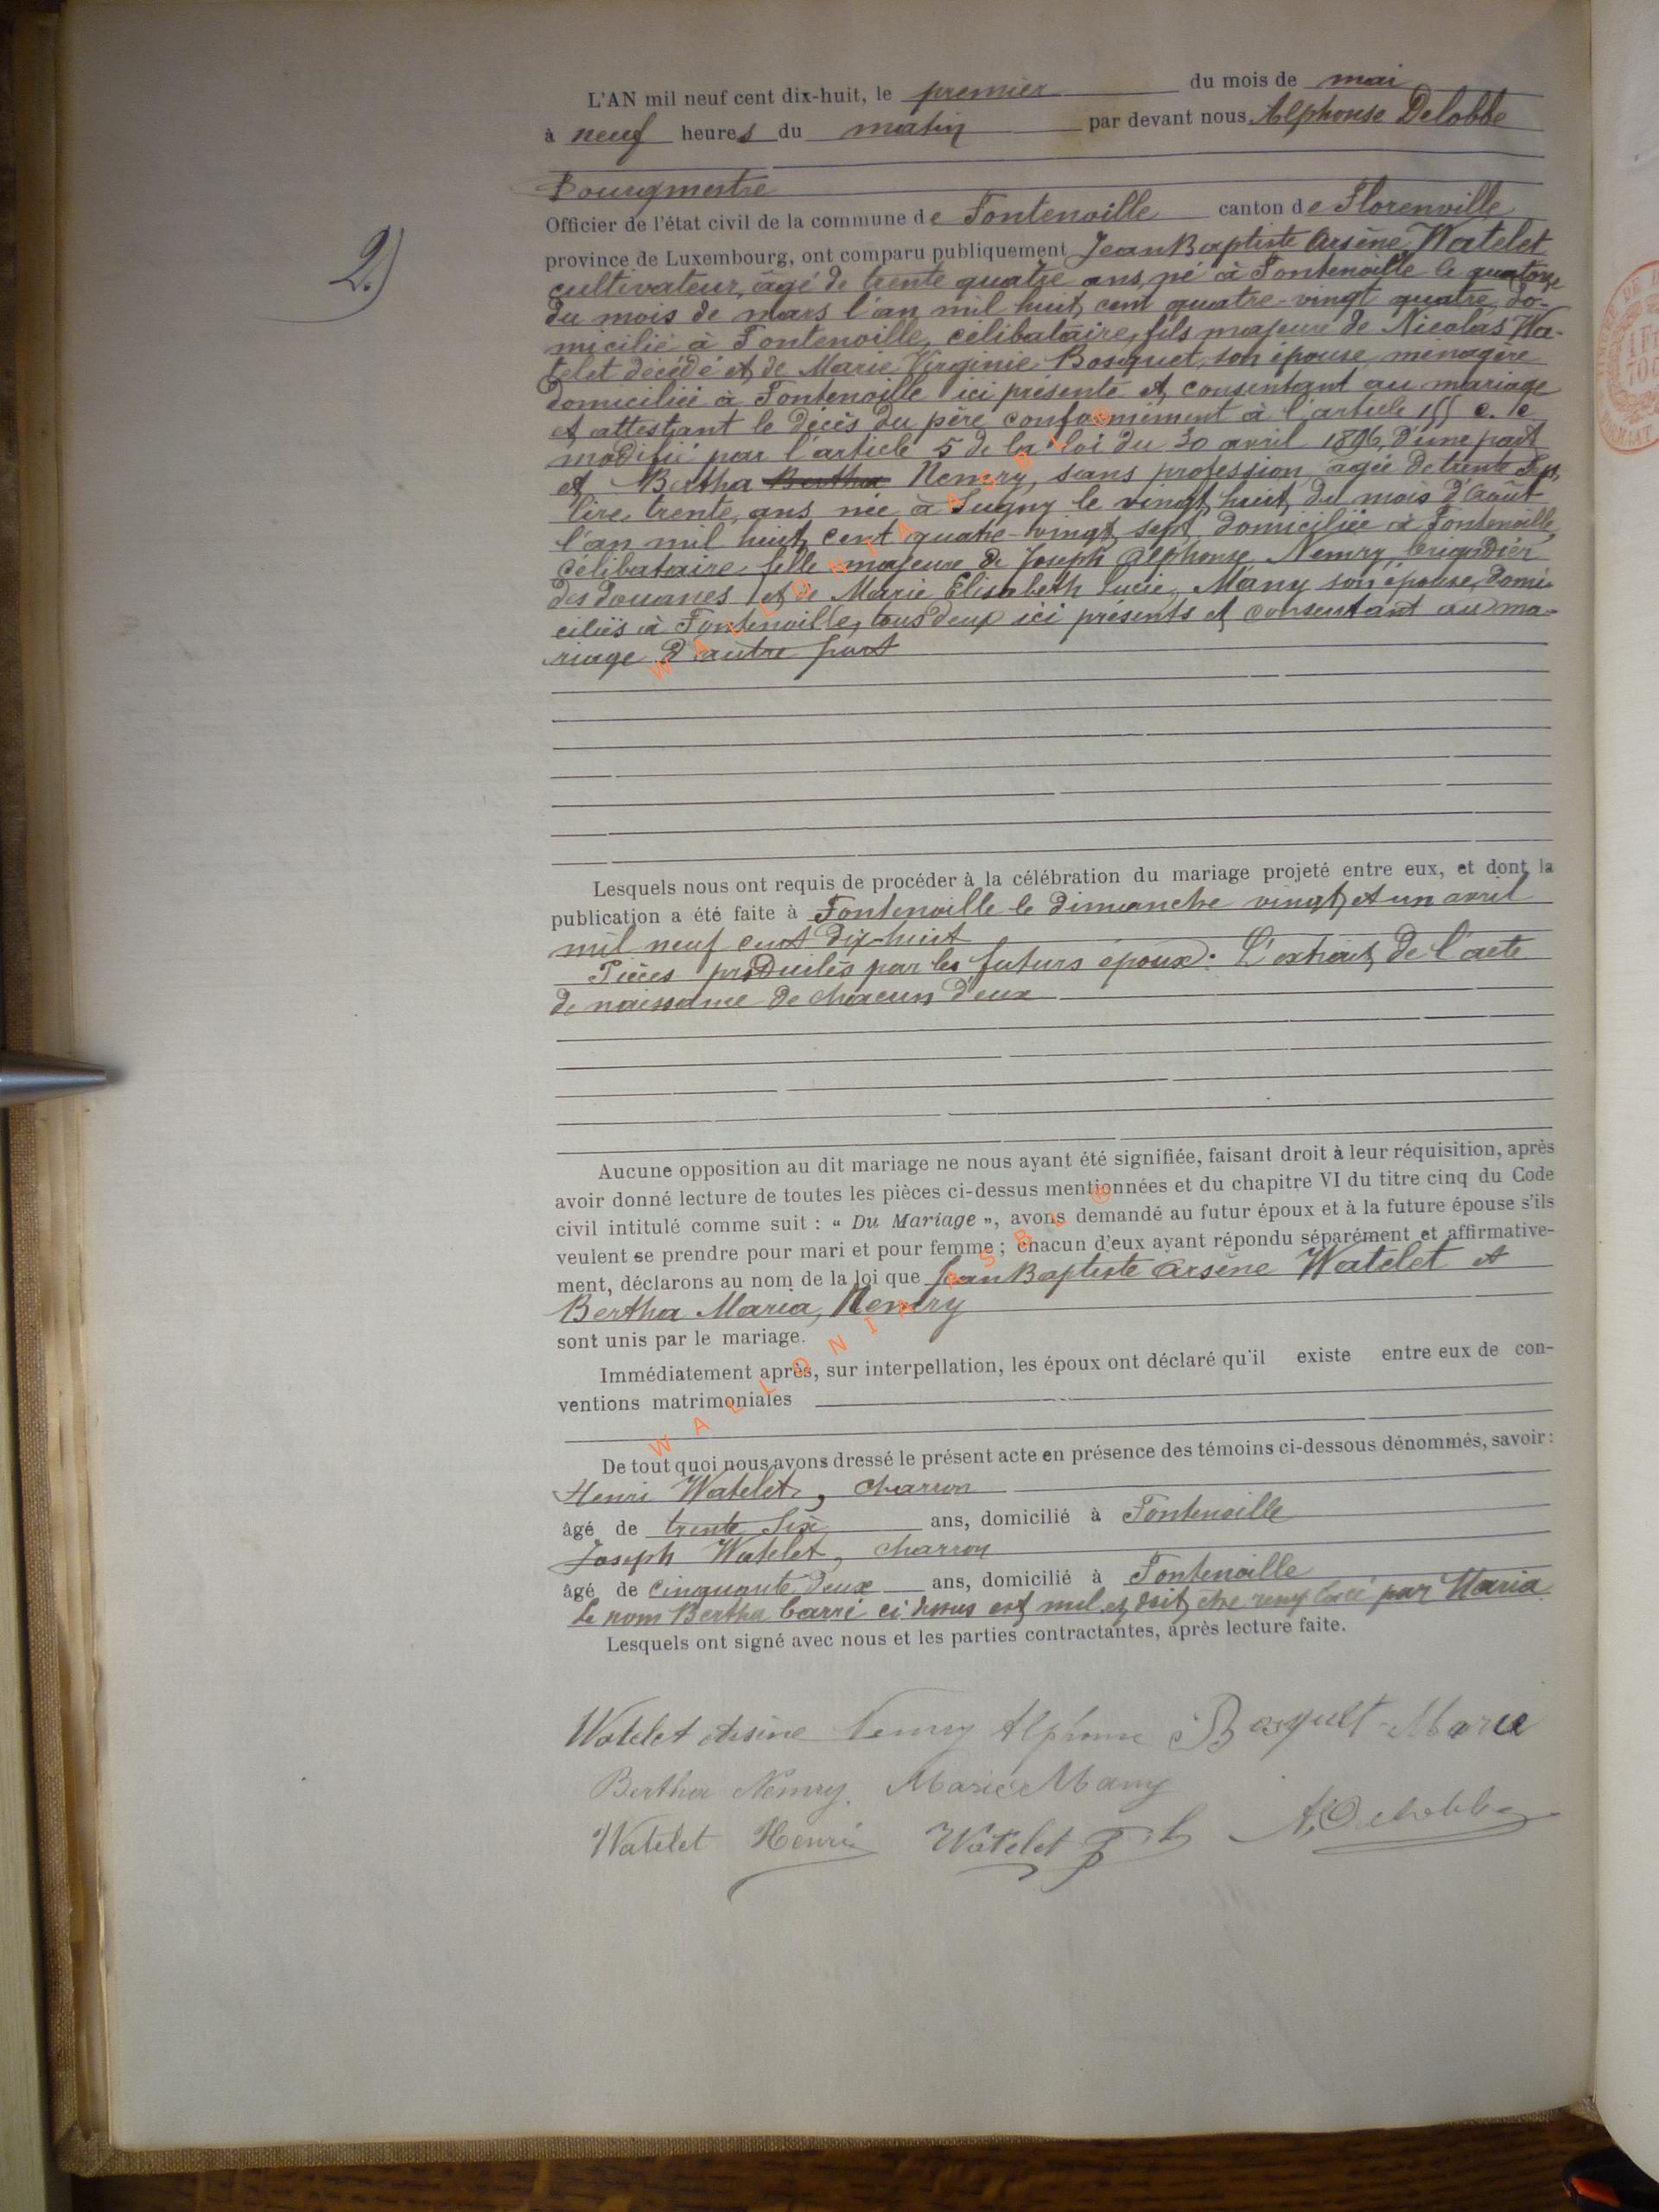 2)
L'AN mil neuf cent dix-huit, le premier du mois de mai
à neuf heures du matin par devant nous Alphonse Delobbe
Bourgmestre
Officier de l'état civil de la commune de Fontenoille canton de Florenville
province de Luxembourg, ont comparu publiquement Jean Baptiste Arsène Watelet
cultivateur, âgé de trente quatre ans, né à Fontenoille le quatorze
du mois de mars l'an mil huit cent quatre-vingt quatre, do-
micilié à Fontenoille, célibataire, fils majeur de Nicolas Wa-
telet décédé et de Marie Virginie Bosquet, son épouse, ménagère
domiciliée à Fontenoille ici présente et consentant au mariage
et attestant le décès du père conformément à l'article 155 c. c
modifié par l'article 5 de la loi du 30 avril 1896, d'une part
et Bertha Bertha Nemry, sans profession, agée de trente sept,
lire, trente, ans née à Sugny le vingt huit du mois d'août
l'an mil huit cent quatre-vingt sept domiciliée à Fontenoille,
célibataire, fille majeure de Joseph Alphonse Nemry, brigadier
des douanes et de Marie Elisabeth Lucie Many son épouse, domi-
ciliés à Fontenoille, tous deux ici présents et consentant au ma-
riage d'autre part
Lesquels nous ont requis de procéder à la célébration du mariage projeté entre eux, et dont la
publication a été faite à Fontenoille le dimanche vingt et un avril
mil neuf cent dix-huit
Pièces produites par les futurs époux: L'extrait de l'acte
de naissance de chacun d'eux
Aucune opposition au dit mariage ne nous ayant été signifiée, faisant droit à leur réquisition, après
avoir donné lecture de toutes les pièces ci-dessus mentionnées et du chapitre VI du titre cinq du Code
civil intitulé comme suit : « Du Mariage », avons demandé au futur époux et à la future épouse s'ils
veulent se prendre pour mari et pour femme ; chacun d'eux ayant répondu séparément et affirmative-
ment, déclarons au nom de la loi que Jean Baptiste Arsène Watelet et
Bertha Maria, Nemry
sont unis par le mariage.
Immédiatement après, sur interpellation, les époux ont déclaré qu'il existe entre eux de con-
ventions matrimoniales
De tout quoi nous avons dressé le présent acte en présence des témoins ci-dessous dénommés, savoir :
Henri Watelet, charron
âgé de trente six ans, domicilié à Fontenoille
Joseph Watelet, charron
âgé de cinquante deux ans, domicilié à Fontenoille
Le nom Bertha barré ci dessus est nul et doit être remplacé par Maria
Lesquels ont signé avec nous et les parties contractantes, après lecture faite.
Watelet Arsène Nemry Alphonse Bosquet Marie
Bertha Nemry. Marie Many
Watelet Henri Watelet Jh A. Delobbe
WALLONIA ASBL ®
WALLONIA ASBL ®